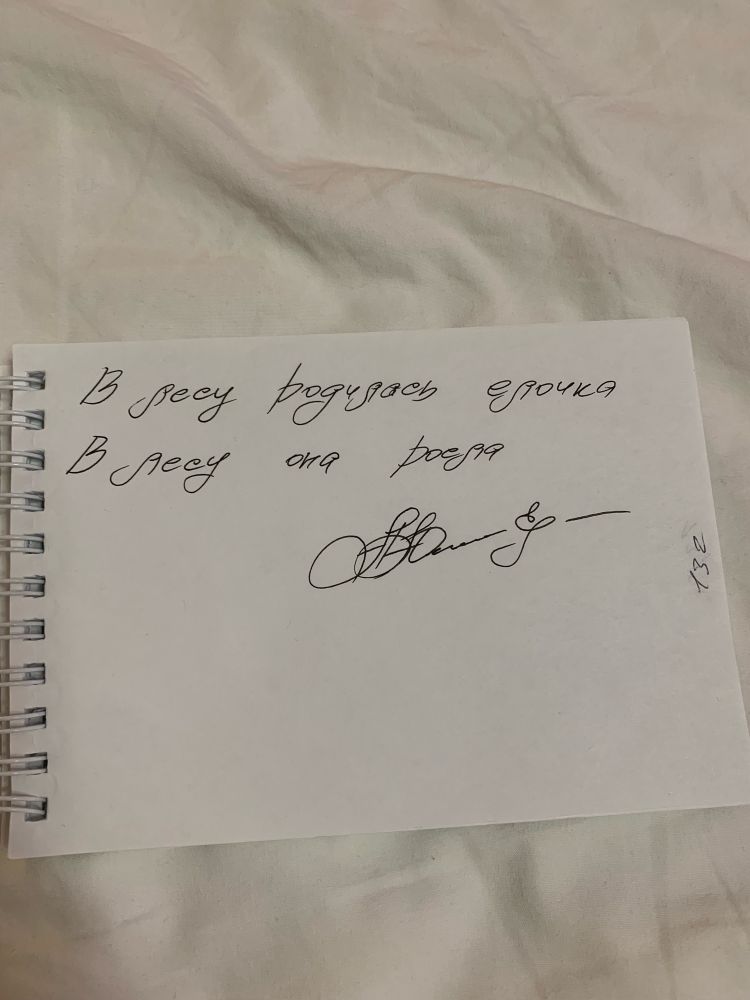 В лесу родилась елочка
В лесу она росла
132